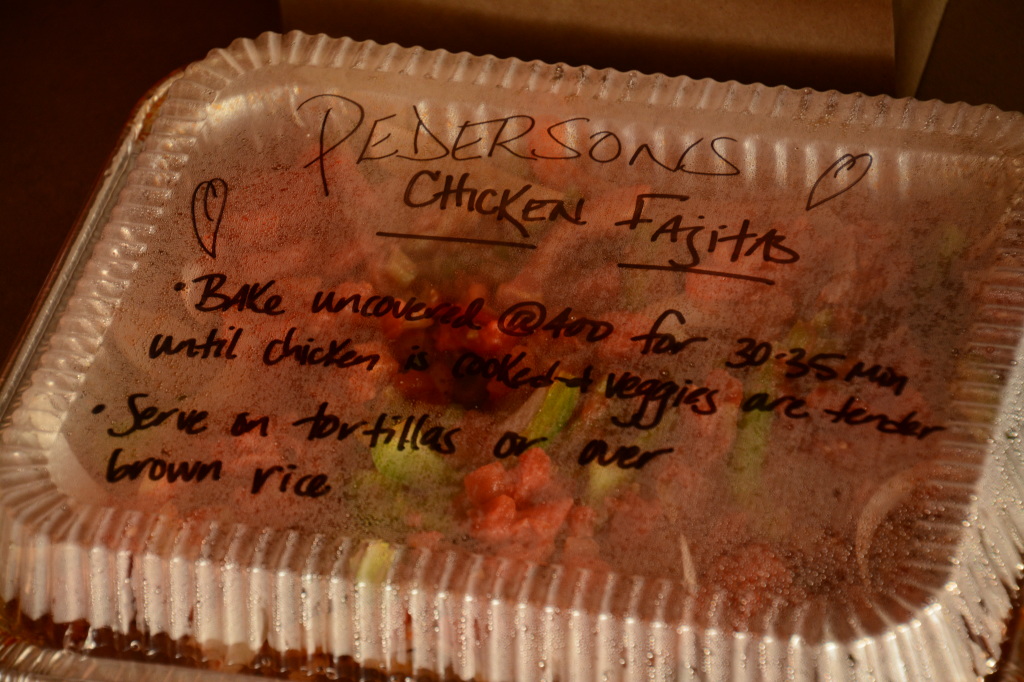 PEDERSONS
CHICKEN FAJITAS
• BAKE uncovered @400 for 30-35 Min
until chicken is cooked + veggies are tender
• Serve on tortillas or over
brown rice